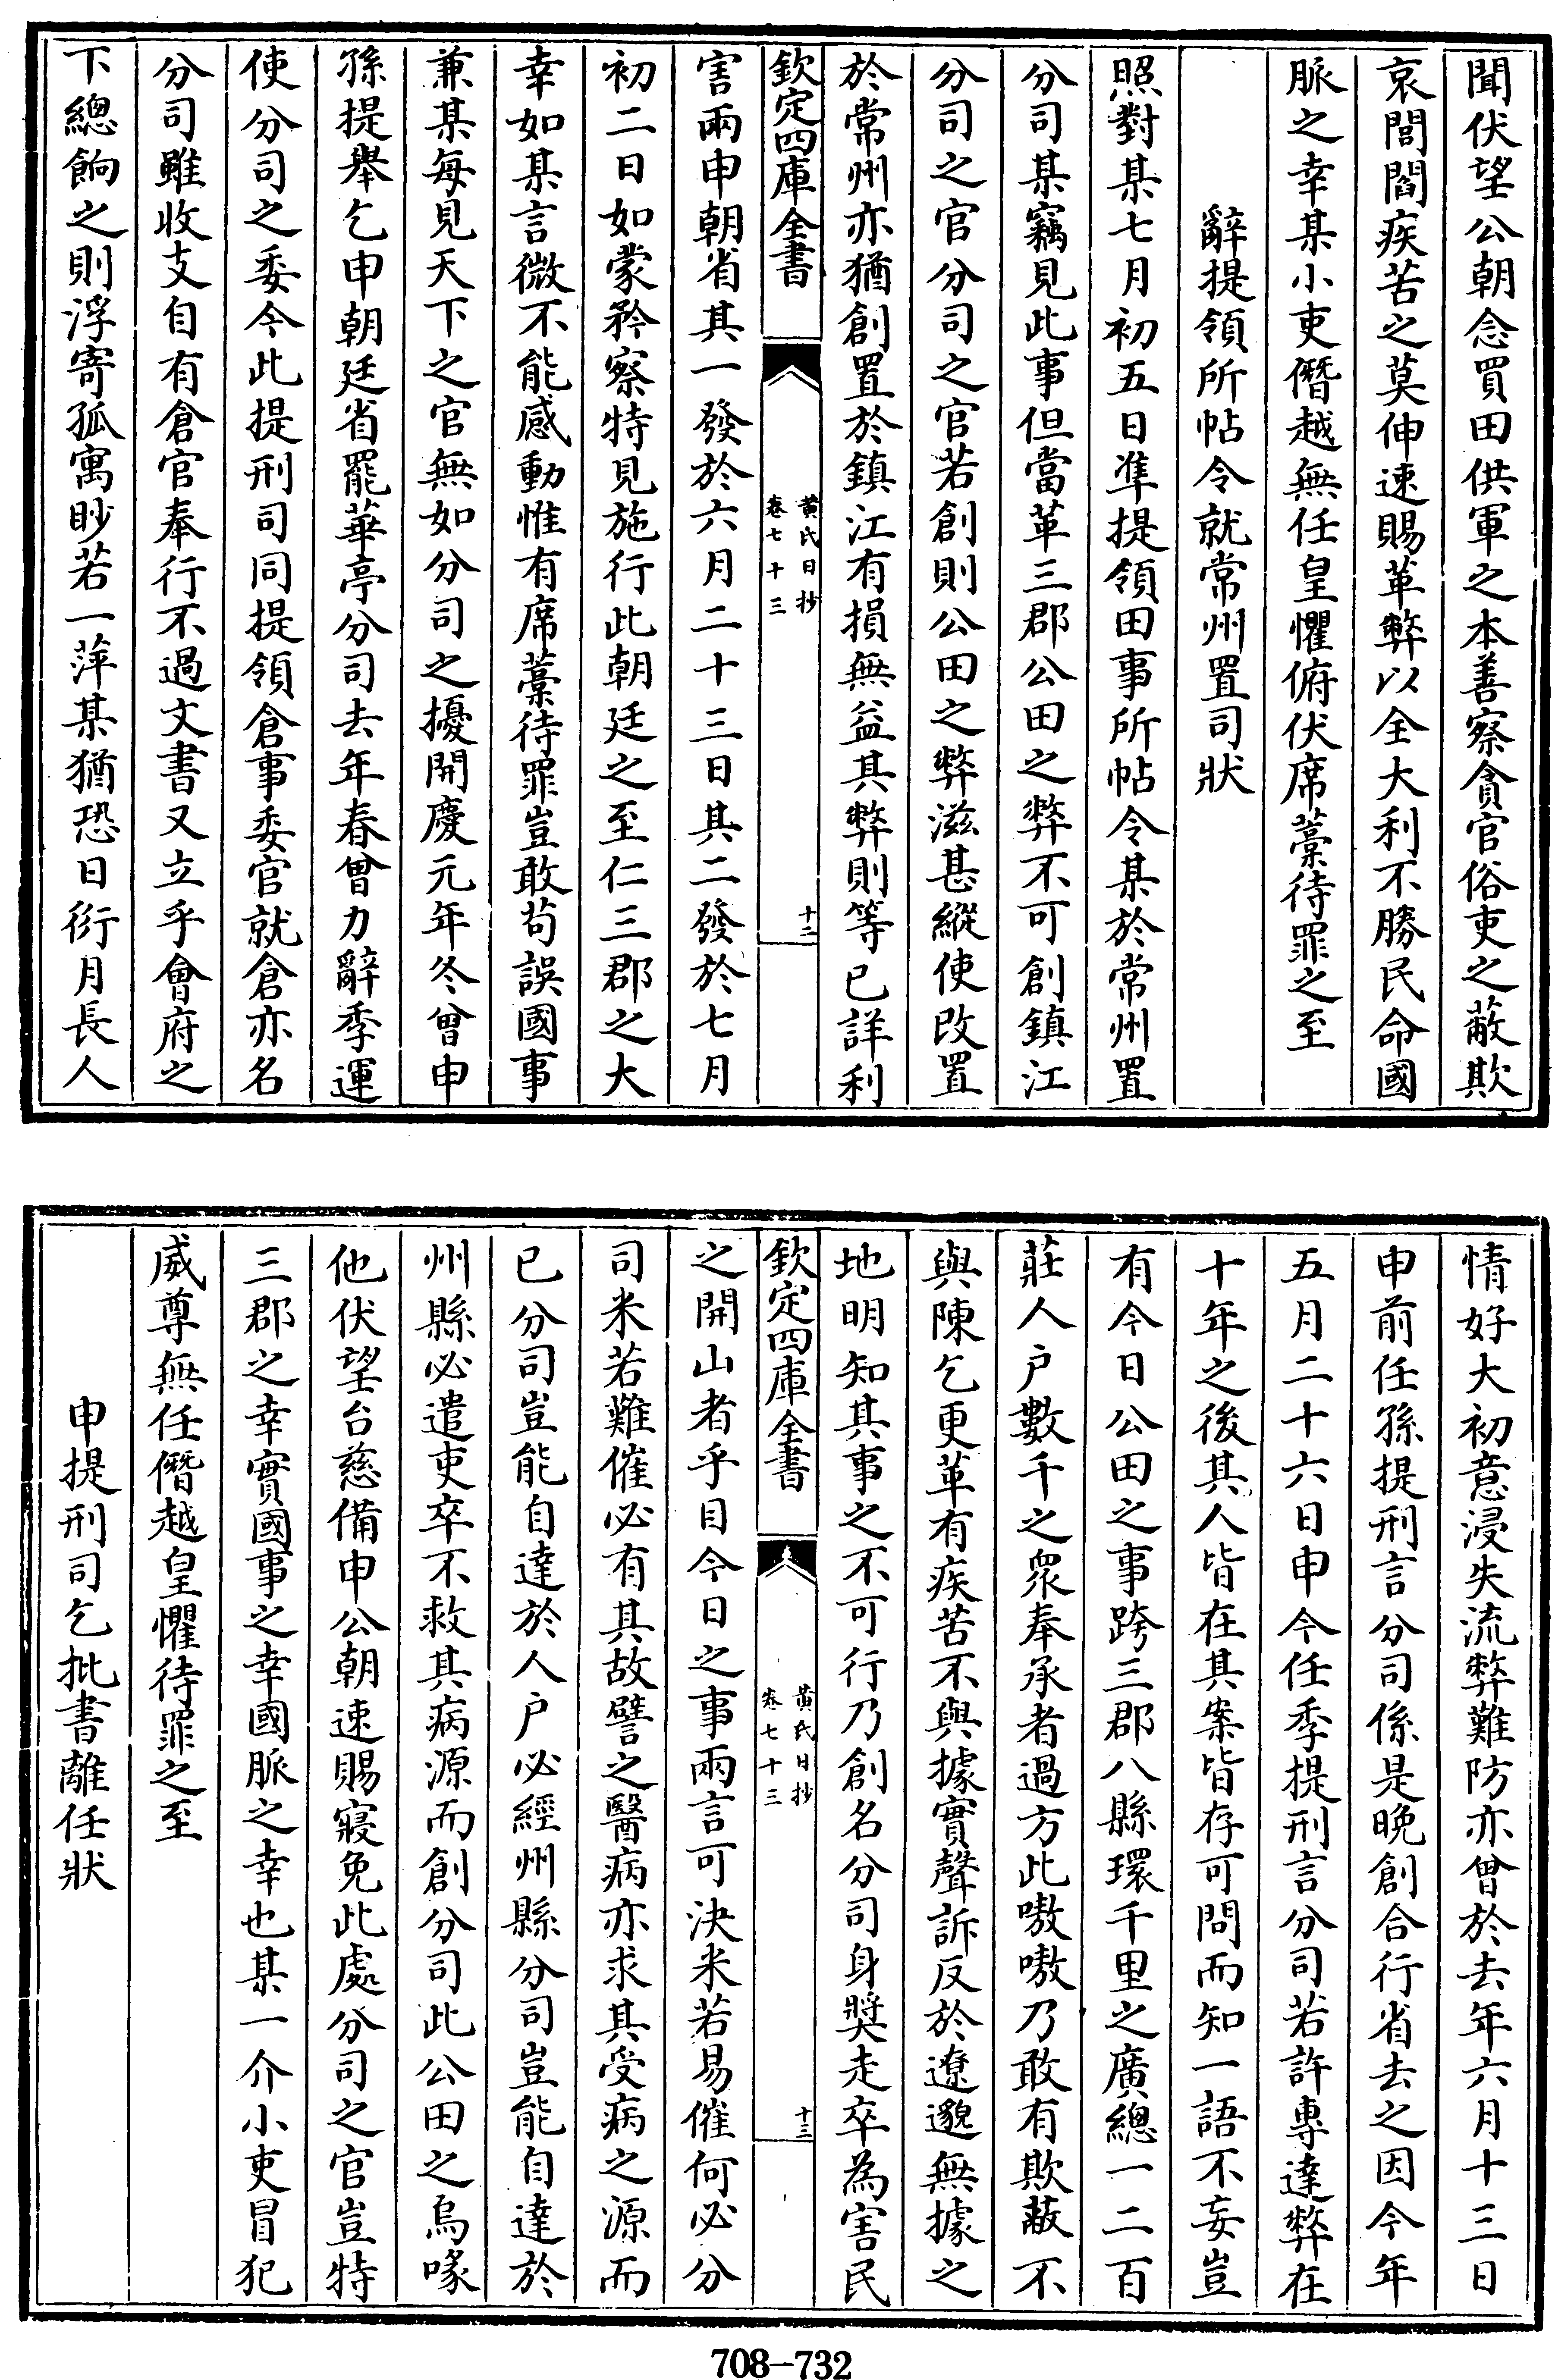 聞伏望公朝念買田供軍之本善察貪官俗吏之蔽欺
哀閭閻疾苦之莫伸速賜革弊以全大利不勝民命國
脈之幸某小吏僭越無任皇懼俯伏席藁待罪之至
辭提領所帖令就常州置司狀
照對某七月初五日準提領田事所帖令某於常州置
分司某竊見此事但當革三郡公田之弊不可創鎮江
分司之官分司之官若創則公田之弊滋甚縱使改置
於常州亦猶創置於鎮江有損無益其弊則等已詳利
欽定四庫全書
黃氏日抄
卷七十三
十二
害兩申朝省其一發於六月二十三日其二發於七月
初二日如蒙矜察特見施行此朝廷之至仁三郡之大
幸如某言微不能感動惟有席藁待罪豈敢苟誤國事
兼某每見天下之官無如分司之擾開慶元年冬曾申
孫提舉乞申朝廷省罷華亭分司去年春曾力辭季運
使分司之委今此提刑司同提領倉事委官就倉亦名
分司雖收支自有倉官奉行不過文書又立乎會府之
下總餉之則浮寄孤寓眇若一萍某猶恐日衍月長人
情好大初意浸失流弊難防亦曾於去年六月十三日
申前任孫提刑言分司係是晚創合行省去之因今年
五月二十六日申今任季提刑言分司若許專達弊在
十年之後其人皆在其案皆存可問而知一語不妄豈
有今日公田之事跨三郡八縣環千里之廣總一二百
莊人户數千之眾奉承者過方此嗷嗷乃敢有欺蔽不
與陳乞更革有疾苦不與據實聲訴反於遼邈無據之
地明知其事之不可行乃創名分司身獎走卒為害民
欽定四庫全書
黃氏日抄
卷七十三
十三
之開山者乎目今日之事兩言可決米若易催何必分
司米若難催必有其故譬之醫病亦求其受病之源而
已分司豈能自達於人户必經州縣分司豈能自達於
州縣必遣吏卒不救其病源而創分司此公田之烏喙
他伏望台慈備申公朝速賜寢免此處分司之官豈特
三郡之幸實國事之幸國脈之幸也某一介小吏冒犯
威尊無任僭越皇懼待罪之至
申提刑司乞批書離任狀
708-732